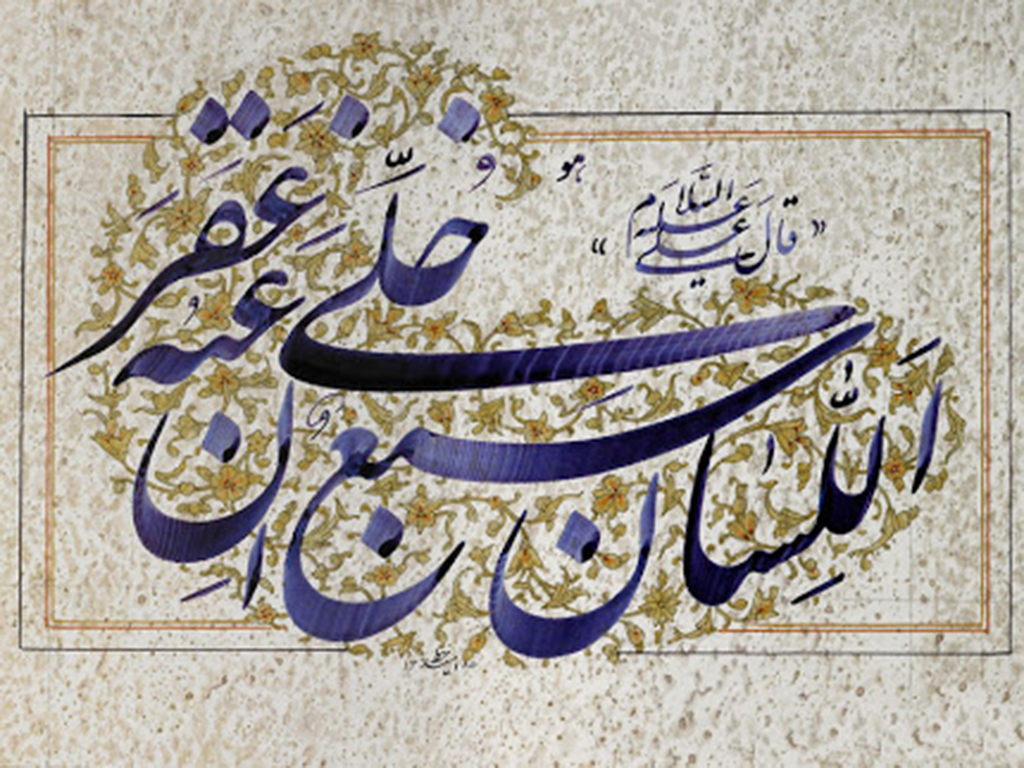 هو
« قَالَ عَلی عَلَیهِ السَّلَام »
اَللِّسَانُ سَبُعٌ اِنْ خُلِّیَ عَنهُ عَقَرَ